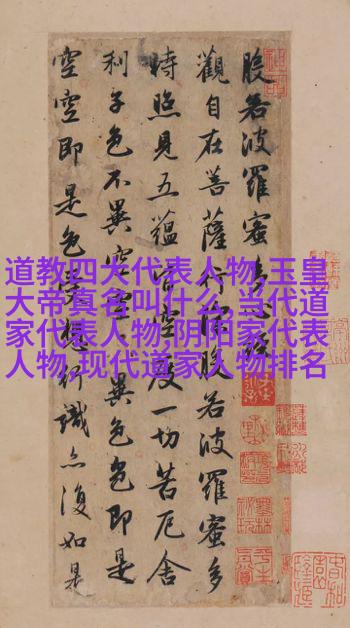 道教四大代表人物,玉皇
大帝真名叫什么,当代道
家代表人物,阴阳家代表
人物,现代道家人物排名
般若波羅蜜多心經
觀自在菩薩行深般若波羅蜜多
時照見五蘊皆空度一切苦厄舍
利子色不異空空不異色色即是
空空即是色受想行識亦復如是